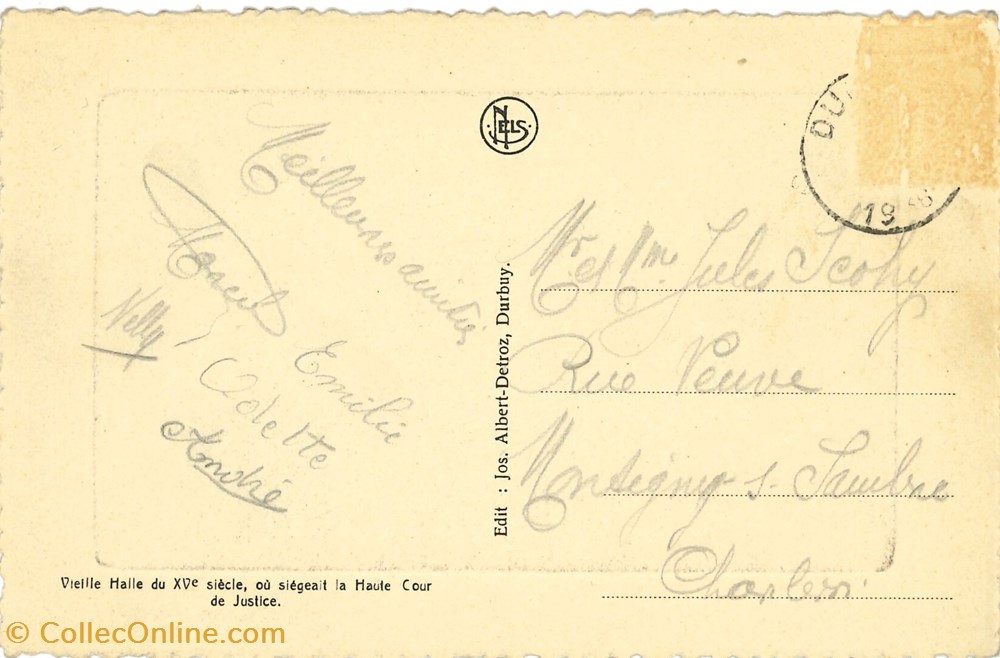 NELS
DU
19
Meilleures amitiés
Marcel
Nelly
Emilie
Odette
André
Edit : Jos. Albert-Detroz, Durbuy.
Mr et Mme Jules Scohy
Rue Neuve
Montigny s. Sambre
Charleroi
Vieille Halle du XVe siècle, où siégeait la Haute Cour
de Justice.
© CollecOnline.com